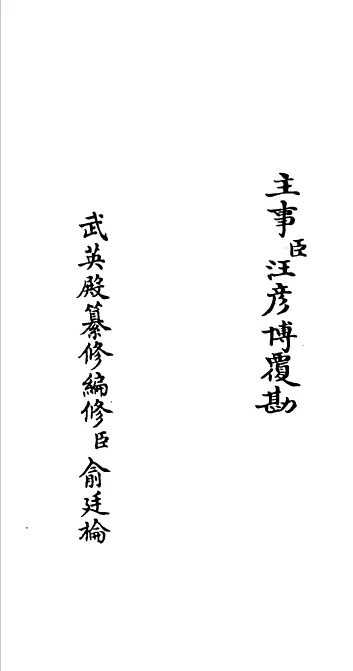 主事臣汪彦博覆勘
武英殿纂修編修臣俞廷棆